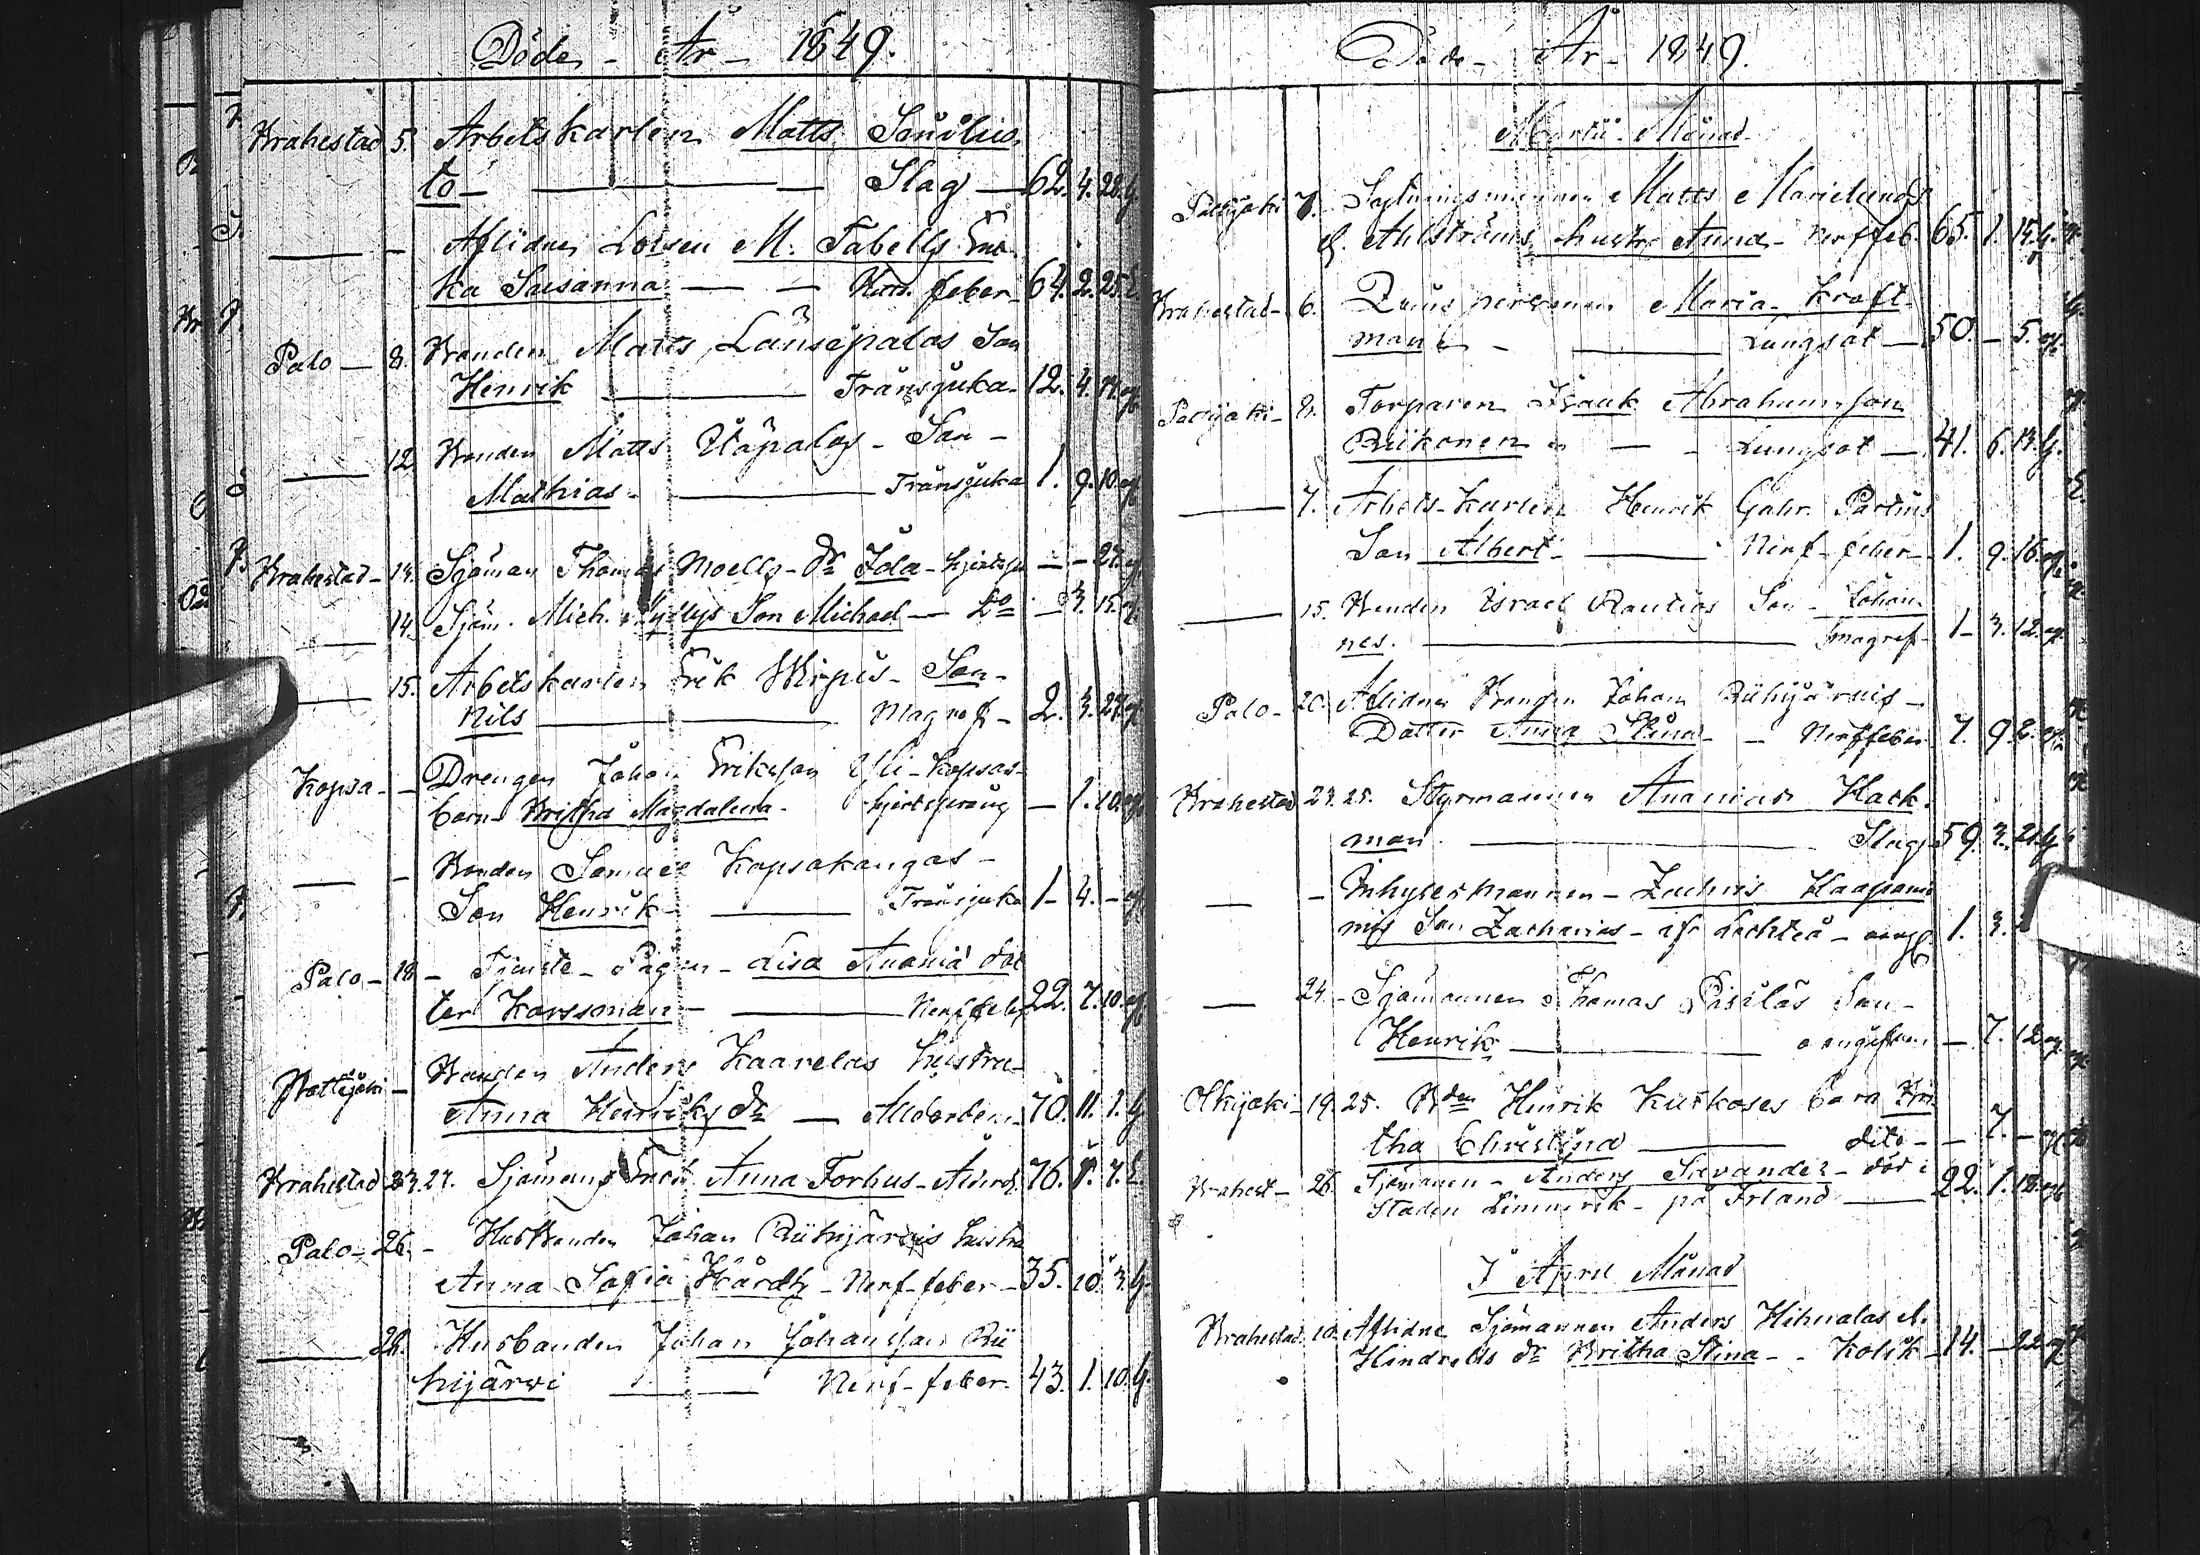 Döde - År - 1849.
Brahestad 5. Arbetskarlen Matts Sandlie
to - Slag - 62. 4. 28. g.
- Aflidne Lotsen M. Tabells Enc
ka Susanna - feber - 64. 2. 25. E.
Palo - 8. Bonden Matts Länsipalos Son
Henrik - Trånsjuka - 12. 4. 14. og
- 12. Bonden Matts Ylipalos - Son -
Mathias - Trånsjuka 1. 9. 10. og
Brahestad - 14. Sjöman Thomas Moells - dr Ida - - - 27. og
- 14. Sjöm. Mich. Myllys Son Michael - Do - 3. 15. og
- 15. Arbetskarlen Erik Wirpis - Son -
Nils - Magref - 2. 3. 27. og
Kopsa - - Drengen Johan Eriksson Yli-Kopsas -
barn Britha Magdalena - hjertsprång - 1. 10. og
- - Bonden Samuel Kopsakangas -
Son Henrik - Trånsjuka 1 - 4. - og
Palo - 18 - Tjenste - Pigan - Lisa Anania dot
ter Korssman - Nerffeber 22. 7. 10. og
Pattijoki - Bonden Anders Kaarelas hustru -
Anna Henriks dr - Ålderdom - 70. 11. 1. g
Brahestad 23. 27. Sjömans Enck. Anna Forhus - Ålderd. 76. 8. 7. E.
Palo - 26. - Husbonden Johan Riihijärvis hustru
Anna Sofia Hårdh - Nerf-feber - 35. 10. 3. g.
- 28. Husbonden Johan Johansson Rii
hijärvi - Nerf-feber - 43. 1. 10. g.
Döde - År - 1849.
Martii - Månad
Pattijoki 7. Matts Marielunds
f. Ahlströms hustru Anna - Nerffeb. 65. 1. 15. g.
Brahestad - 6. personen Maria Kraft
man - Lungsot - 50. - 5. og.
Pattijoki - 8. Torparen Isaak Abrahamsson
Riikonen - - Lungsot - 41. 6. 13. g.
- 7. Arbets-Karlen Henrik Gabr. Partins
Son Albert - Nerf-feber - 1. 9. 16. og.
- 15. Bonden Israel Rautios Son - Johan
nes. - magref - 1 - 3. 12. og.
Palo - 20. Aflidne Drengen Johan Riihijärvis -
Dotter Anna Stina - - Nerffeber 7. 9. 2. og
Brahestad 23. 25. Styrmannen Ananias Hack
man - Slag 59. 3. 21. g
- - Inhysesmannen - Zachris Haapani
mis Son Zacharias - ifr Lochteå - 1. 3.
- 24. - Sjömannen Thomas Pisiläs Son -
Henrik - oangifven - 7. 12 og.
Olkijoki - 19. 25. Bden Henrik Kurkoses barn Bri
tha Christina - dito - - 7. - og
Brahest - 26. Sjömanen - Anders Savander - död i
Staden Limmerik - på Irland - 22. 1. 18. og
I April Månad
Brahestad. 10. Aflidne Sjömannen Anders Hihnalas el.
Hindrells dr Britha Stina - - Kolik - 14. - 22 og